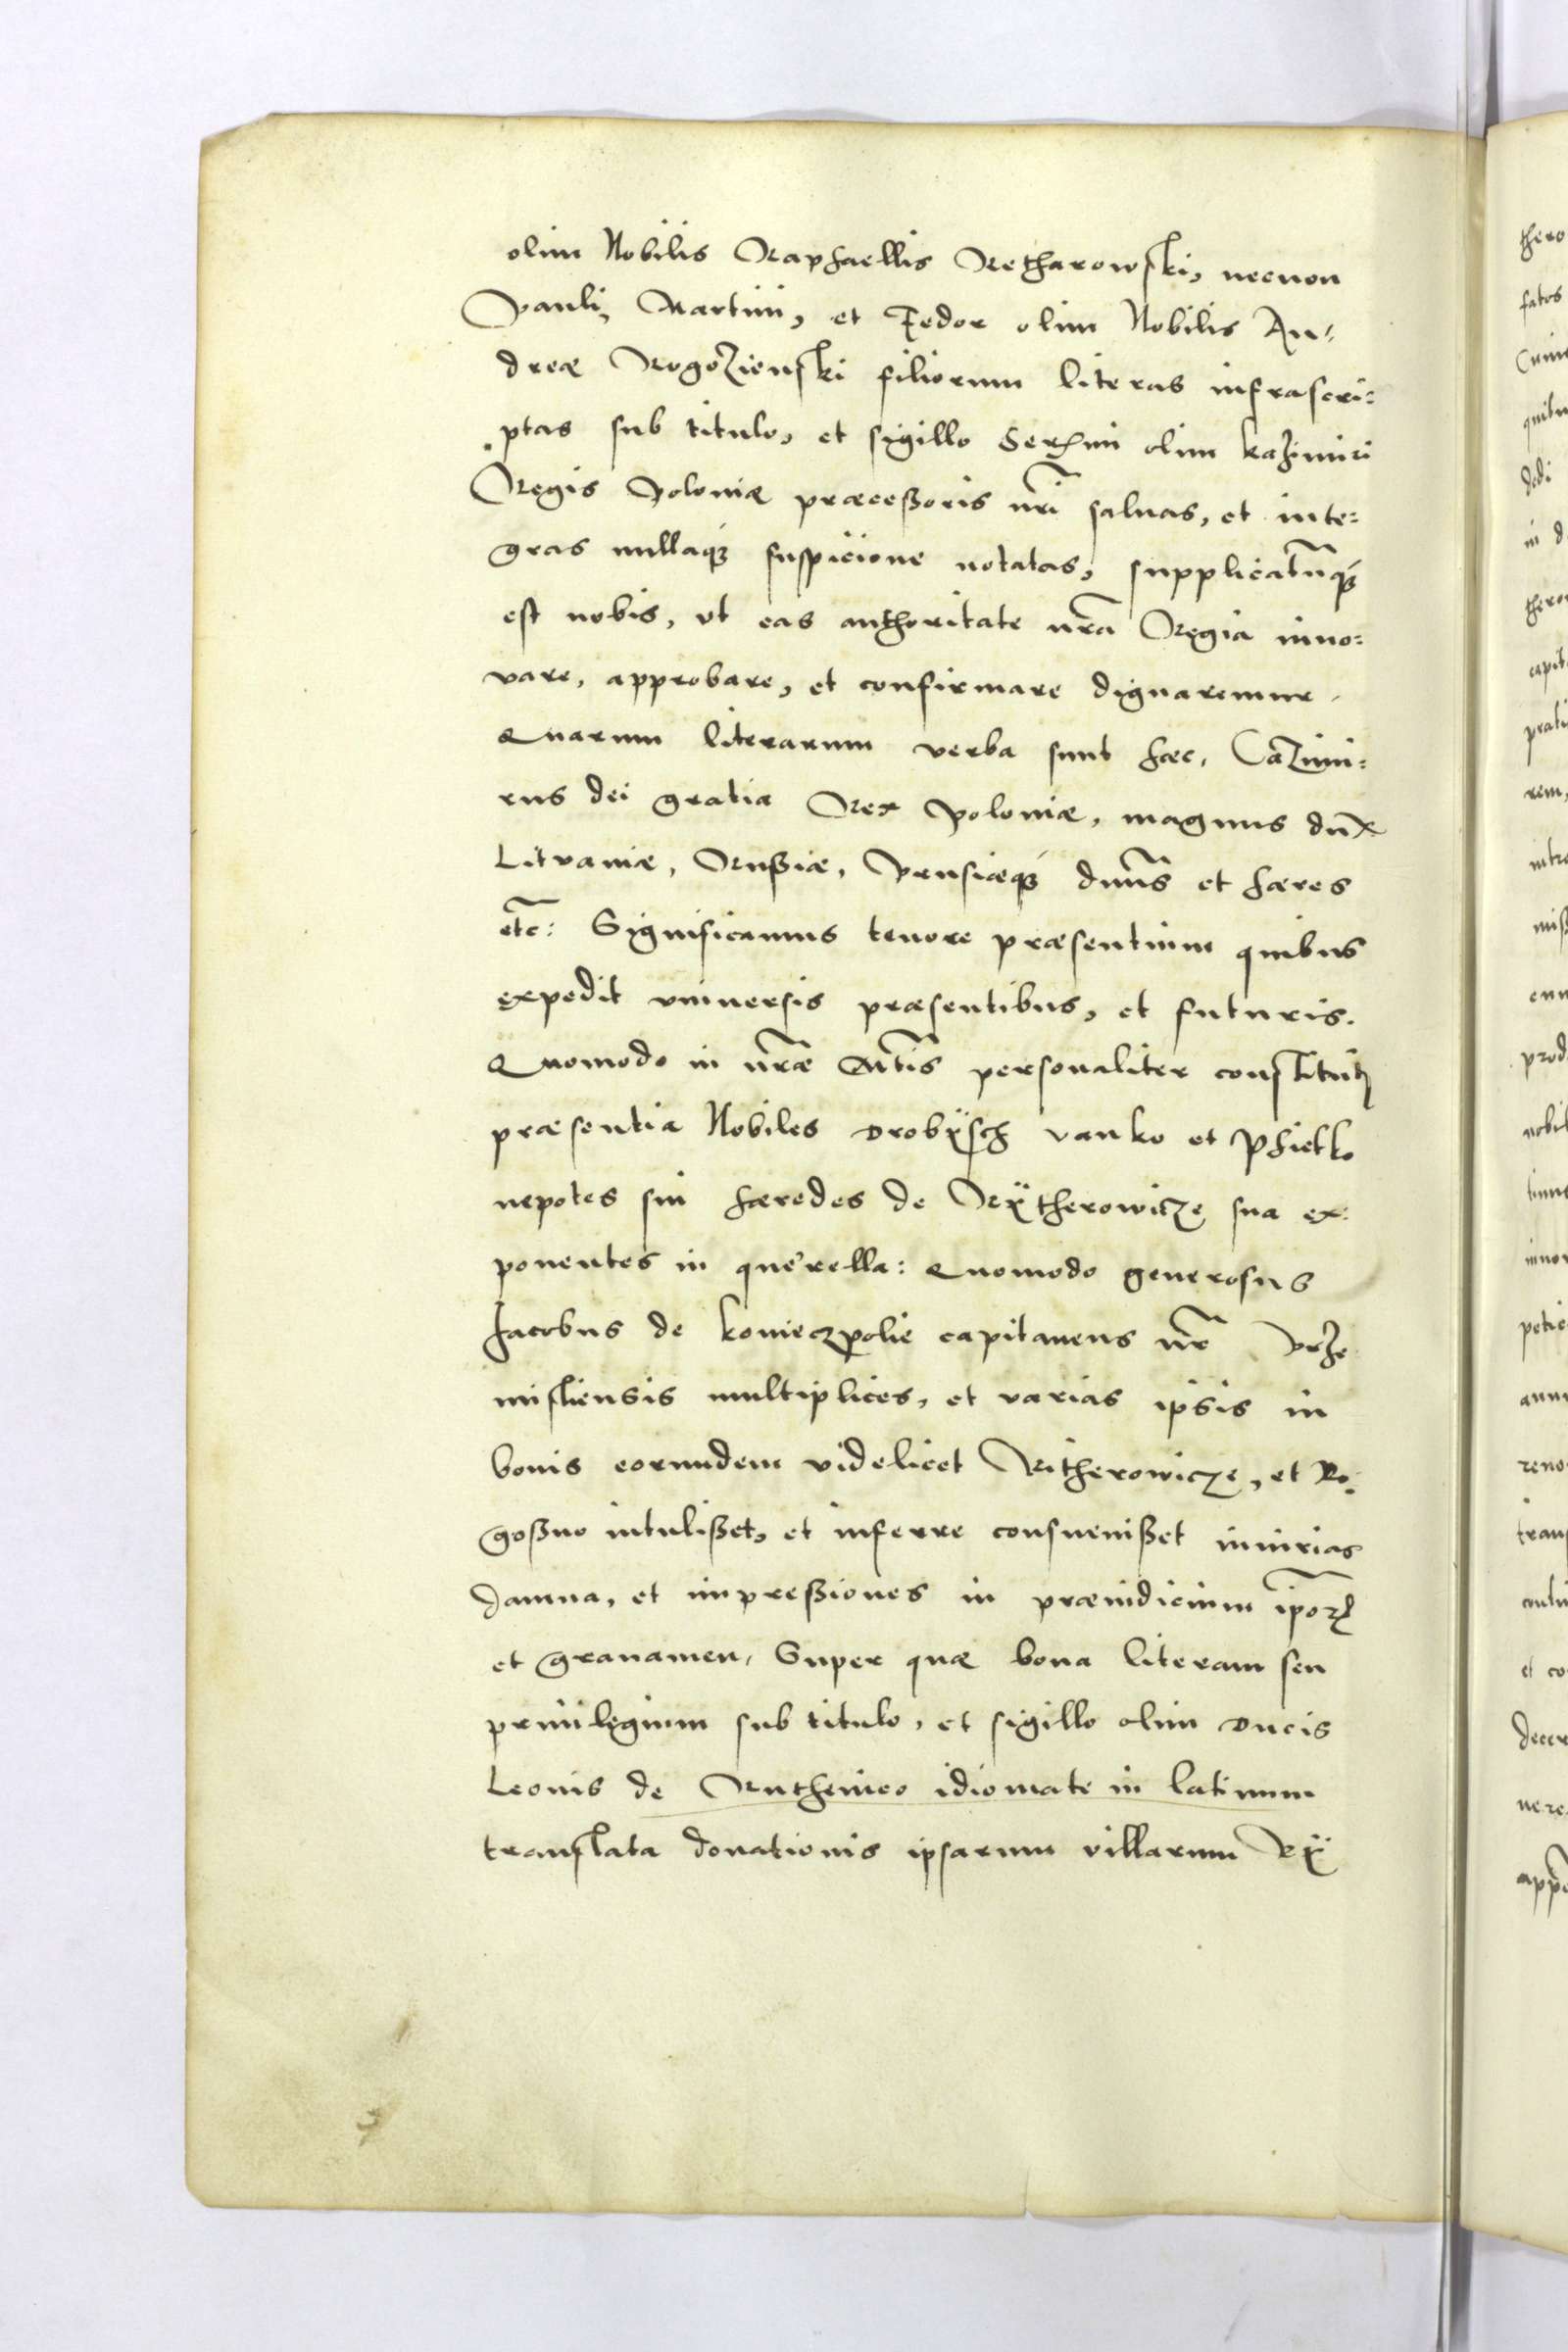 olim Nobilis Raphaellis Retharowski, necnon
Pauli, Martini, et Fedor olim Nobilis An-
dreæ Rogozienski filiorum literas infrascri:
ptas sub titulo, et sigillo Serᵐⁱ olim kazimiri
Regis Poloniæ præcessoris nr̃i saluas, et inte:
gras nullaq́ꝫ suspicione notatas, supplicatũq́ꝫ
est nobis, vt eas authoritate nr̃a Regia inno:
vare, approbare, et confirmare dignaremur.
Quarum literarum verba sunt hæc, Cazimi:
rus dei gratia Rex Poloniæ, magnus dux
Litvaniæ, Russiæ, Prusiæq́ꝫ dnũs et hæres
etc̃: Significamus tenore præsentium quibus
expedit vniuersis præsentibus, et futuris.
Quomodo in nr̃æ Mt̃is personaliter constituti
præsentia Nobiles Drobÿsch vanko et Phietko
nepotes sui hæredes de Rÿtherowicze sua ex:
ponentes in querella: Quomodo generosus
Jacobus de konieczpolie capitaneus nr̃ Prze
misliensis multiplices, et varias ipsis in
bonis eorundem videlicet Ritherowicze, et Ro:
gossno intulisset, et inferre consuenisset iniurias
damna, et impressiones in præiudicium ip̃orꝫ
et grauamen, Super quæ bona literam seu
priuilegium sub titulo, et sigillo olim Ducis
Leonis de Ruthenico idiomate in latinum
translata donationis ipsarum villarum Rÿ
thero
fatos
quibu
dedi
in d
thero
capit
prati
rem,
intro
miss
prod
nobil
petic
reno
tran
et co
decer
uere